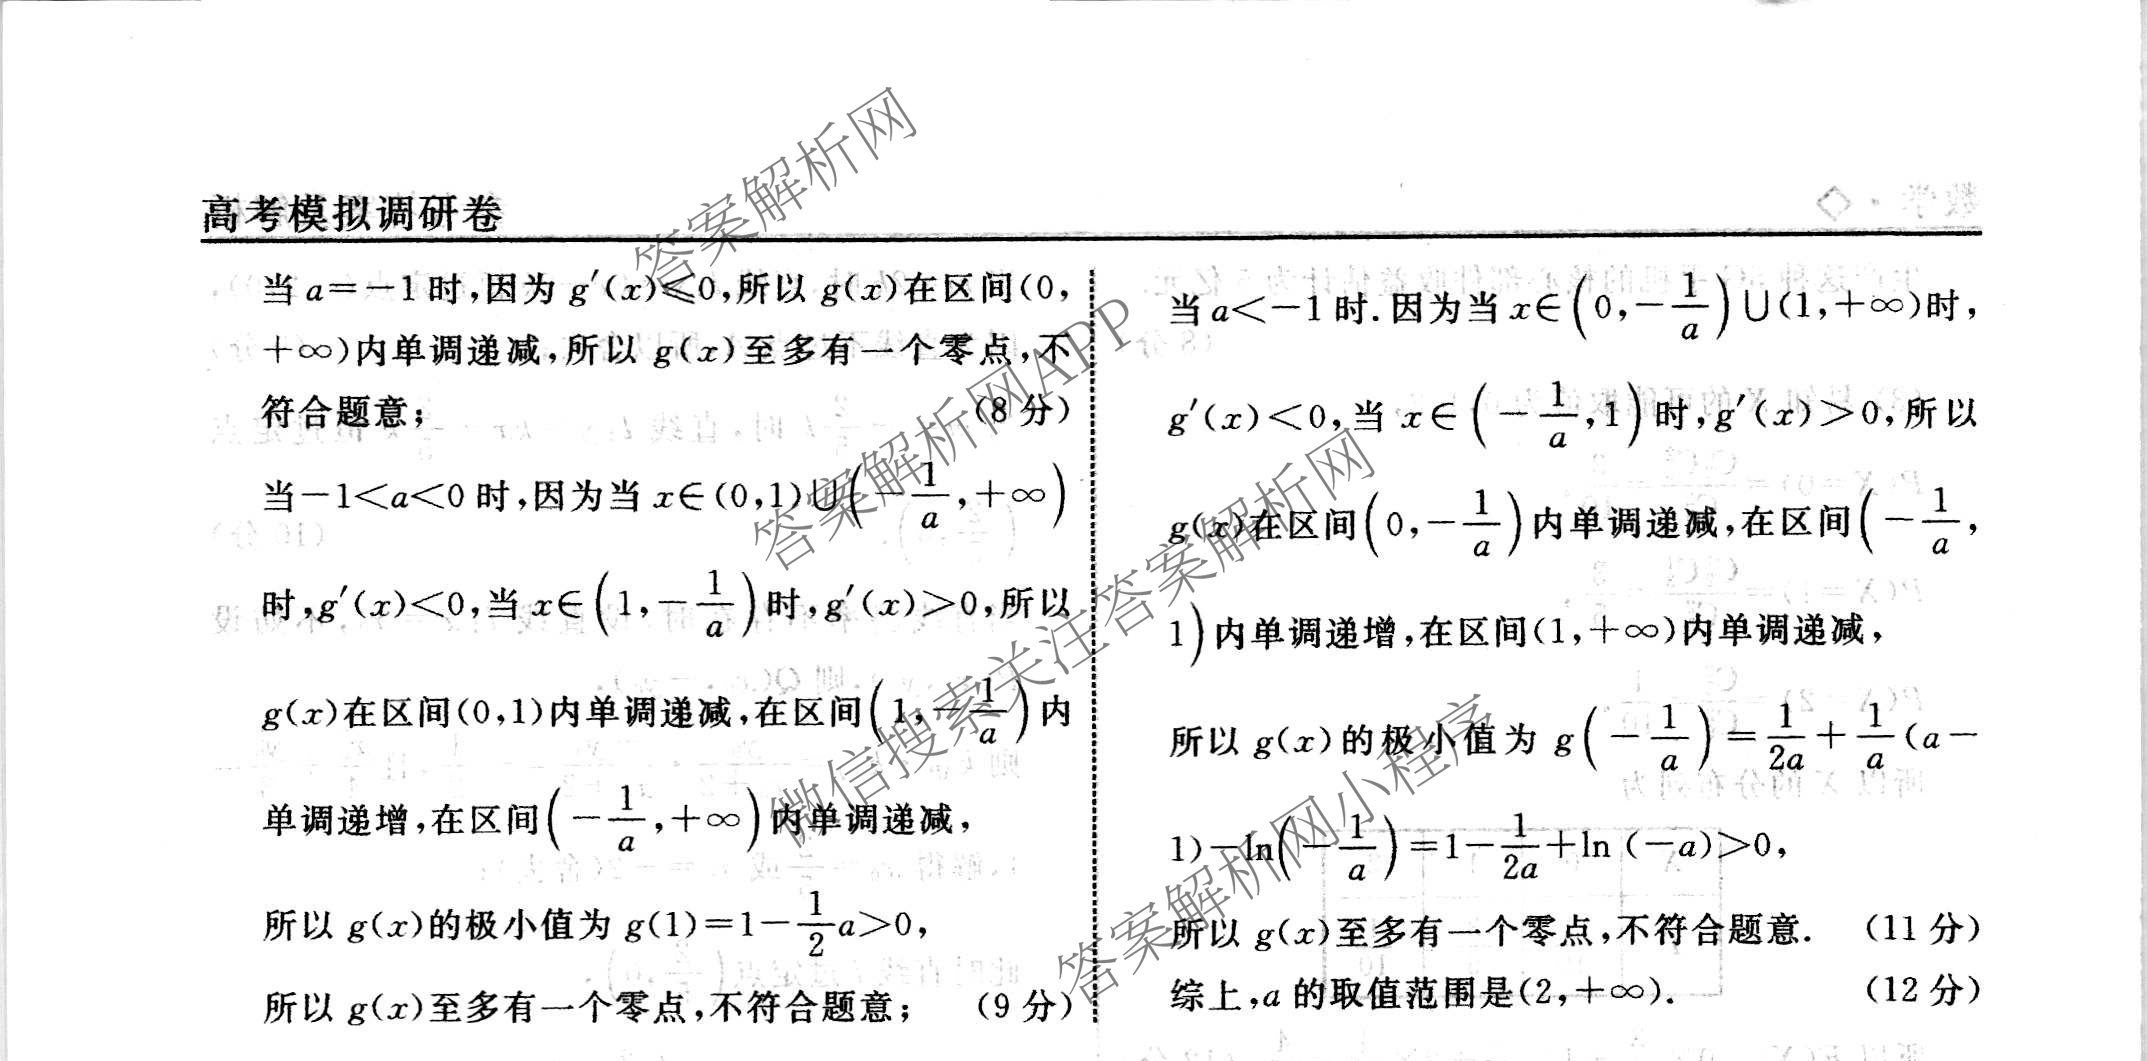 高考模拟调研卷
当a=-1时,因为g′(x)⩽0,所以g(x)在区间(0,
+∞)内单调递减,所以g(x)至多有一个零点,不
符合题意; (8分)
当-1<a<0时,因为当x∈(0,1)∪(-1/a,+∞)
时,g′(x)<0,当x∈(1,-1/a)时,g′(x)>0,所以
g(x)在区间(0,1)内单调递减,在区间(1,-1/a)内
单调递增,在区间(-1/a,+∞)内单调递减,
所以g(x)的极小值为g(1)=1-1/2a>0,
所以g(x)至多有一个零点,不符合题意; (9分)
当a<-1时.因为当x∈(0,-1/a)∪(1,+∞)时,
g′(x)<0,当x∈(-1/a,1)时,g′(x)>0,所以
g(x)在区间(0,-1/a)内单调递减,在区间(-1/a,
1)内单调递增,在区间(1,+∞)内单调递减,
所以g(x)的极小值为g(-1/a)=1/2a+1/a(a-
1)-ln(-1/a)=1-1/2a+ln(-a)>0,
所以g(x)至多有一个零点,不符合题意. (11分)
综上,a的取值范围是(2,+∞). (12分)
答案解析网
答案解析网APP
微信搜索关注答案解析网
答案解析网小程序